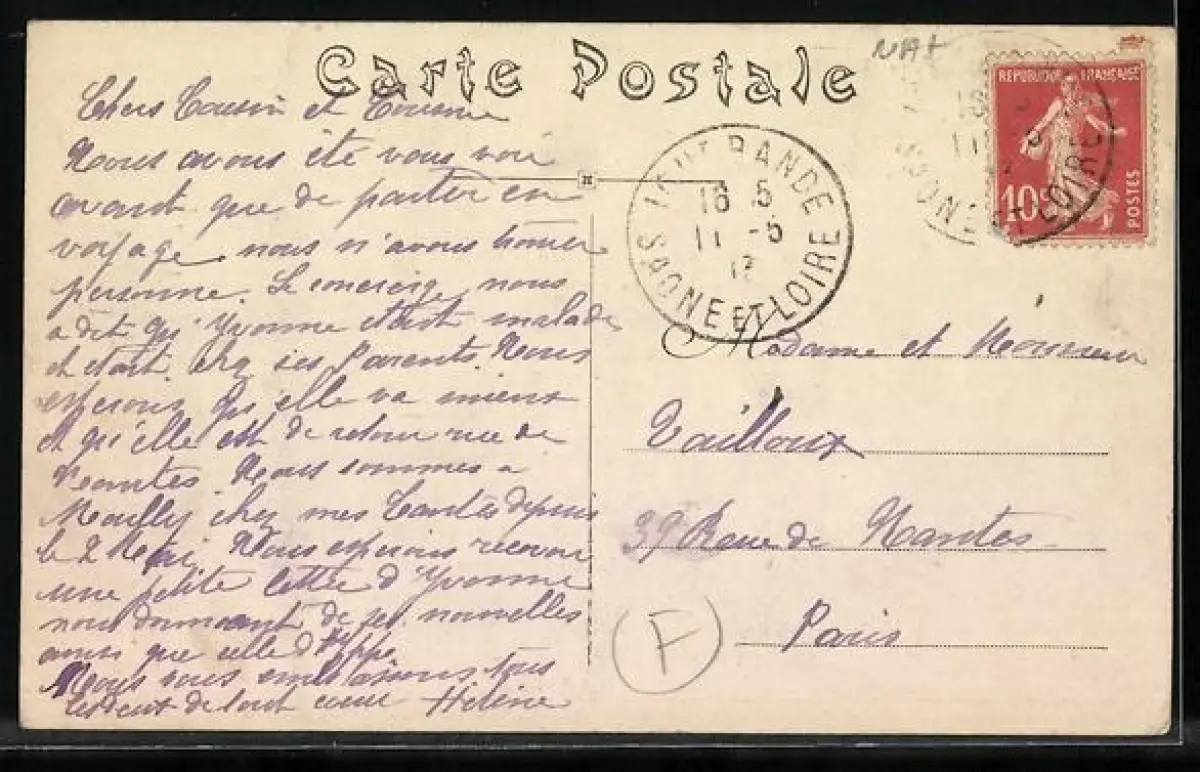 Carte Postale
Chers Cousin et Cousine
Nous avons été vous voir
avant que de partir en
voyage nous n'avons trouver
personne. Le concierge nous
a dit qu'Yvonne était malade
et était chez ses Parents. Nous
esperons qu'elle va mieux
et qu'elle est de retour rue de
Nantes. Nous sommes a
Mailly chez mes Tantes depuis
le 2 Mai. Nous esperons recevoir
une petite lettre d'Yvonne
nous donnant de ses nouvelles
ainsi que celle d'
Nous vous embrassons tous
de tout cœur Hélène
16 15
11 -5
13
SAONE ET LOIRE
REPUBLIQUE FRANÇAISE
10c
POSTES
SAONE ET LOIRE
Madame et Monsieur
Vailloux
39 Rue de Nantes
Paris
F